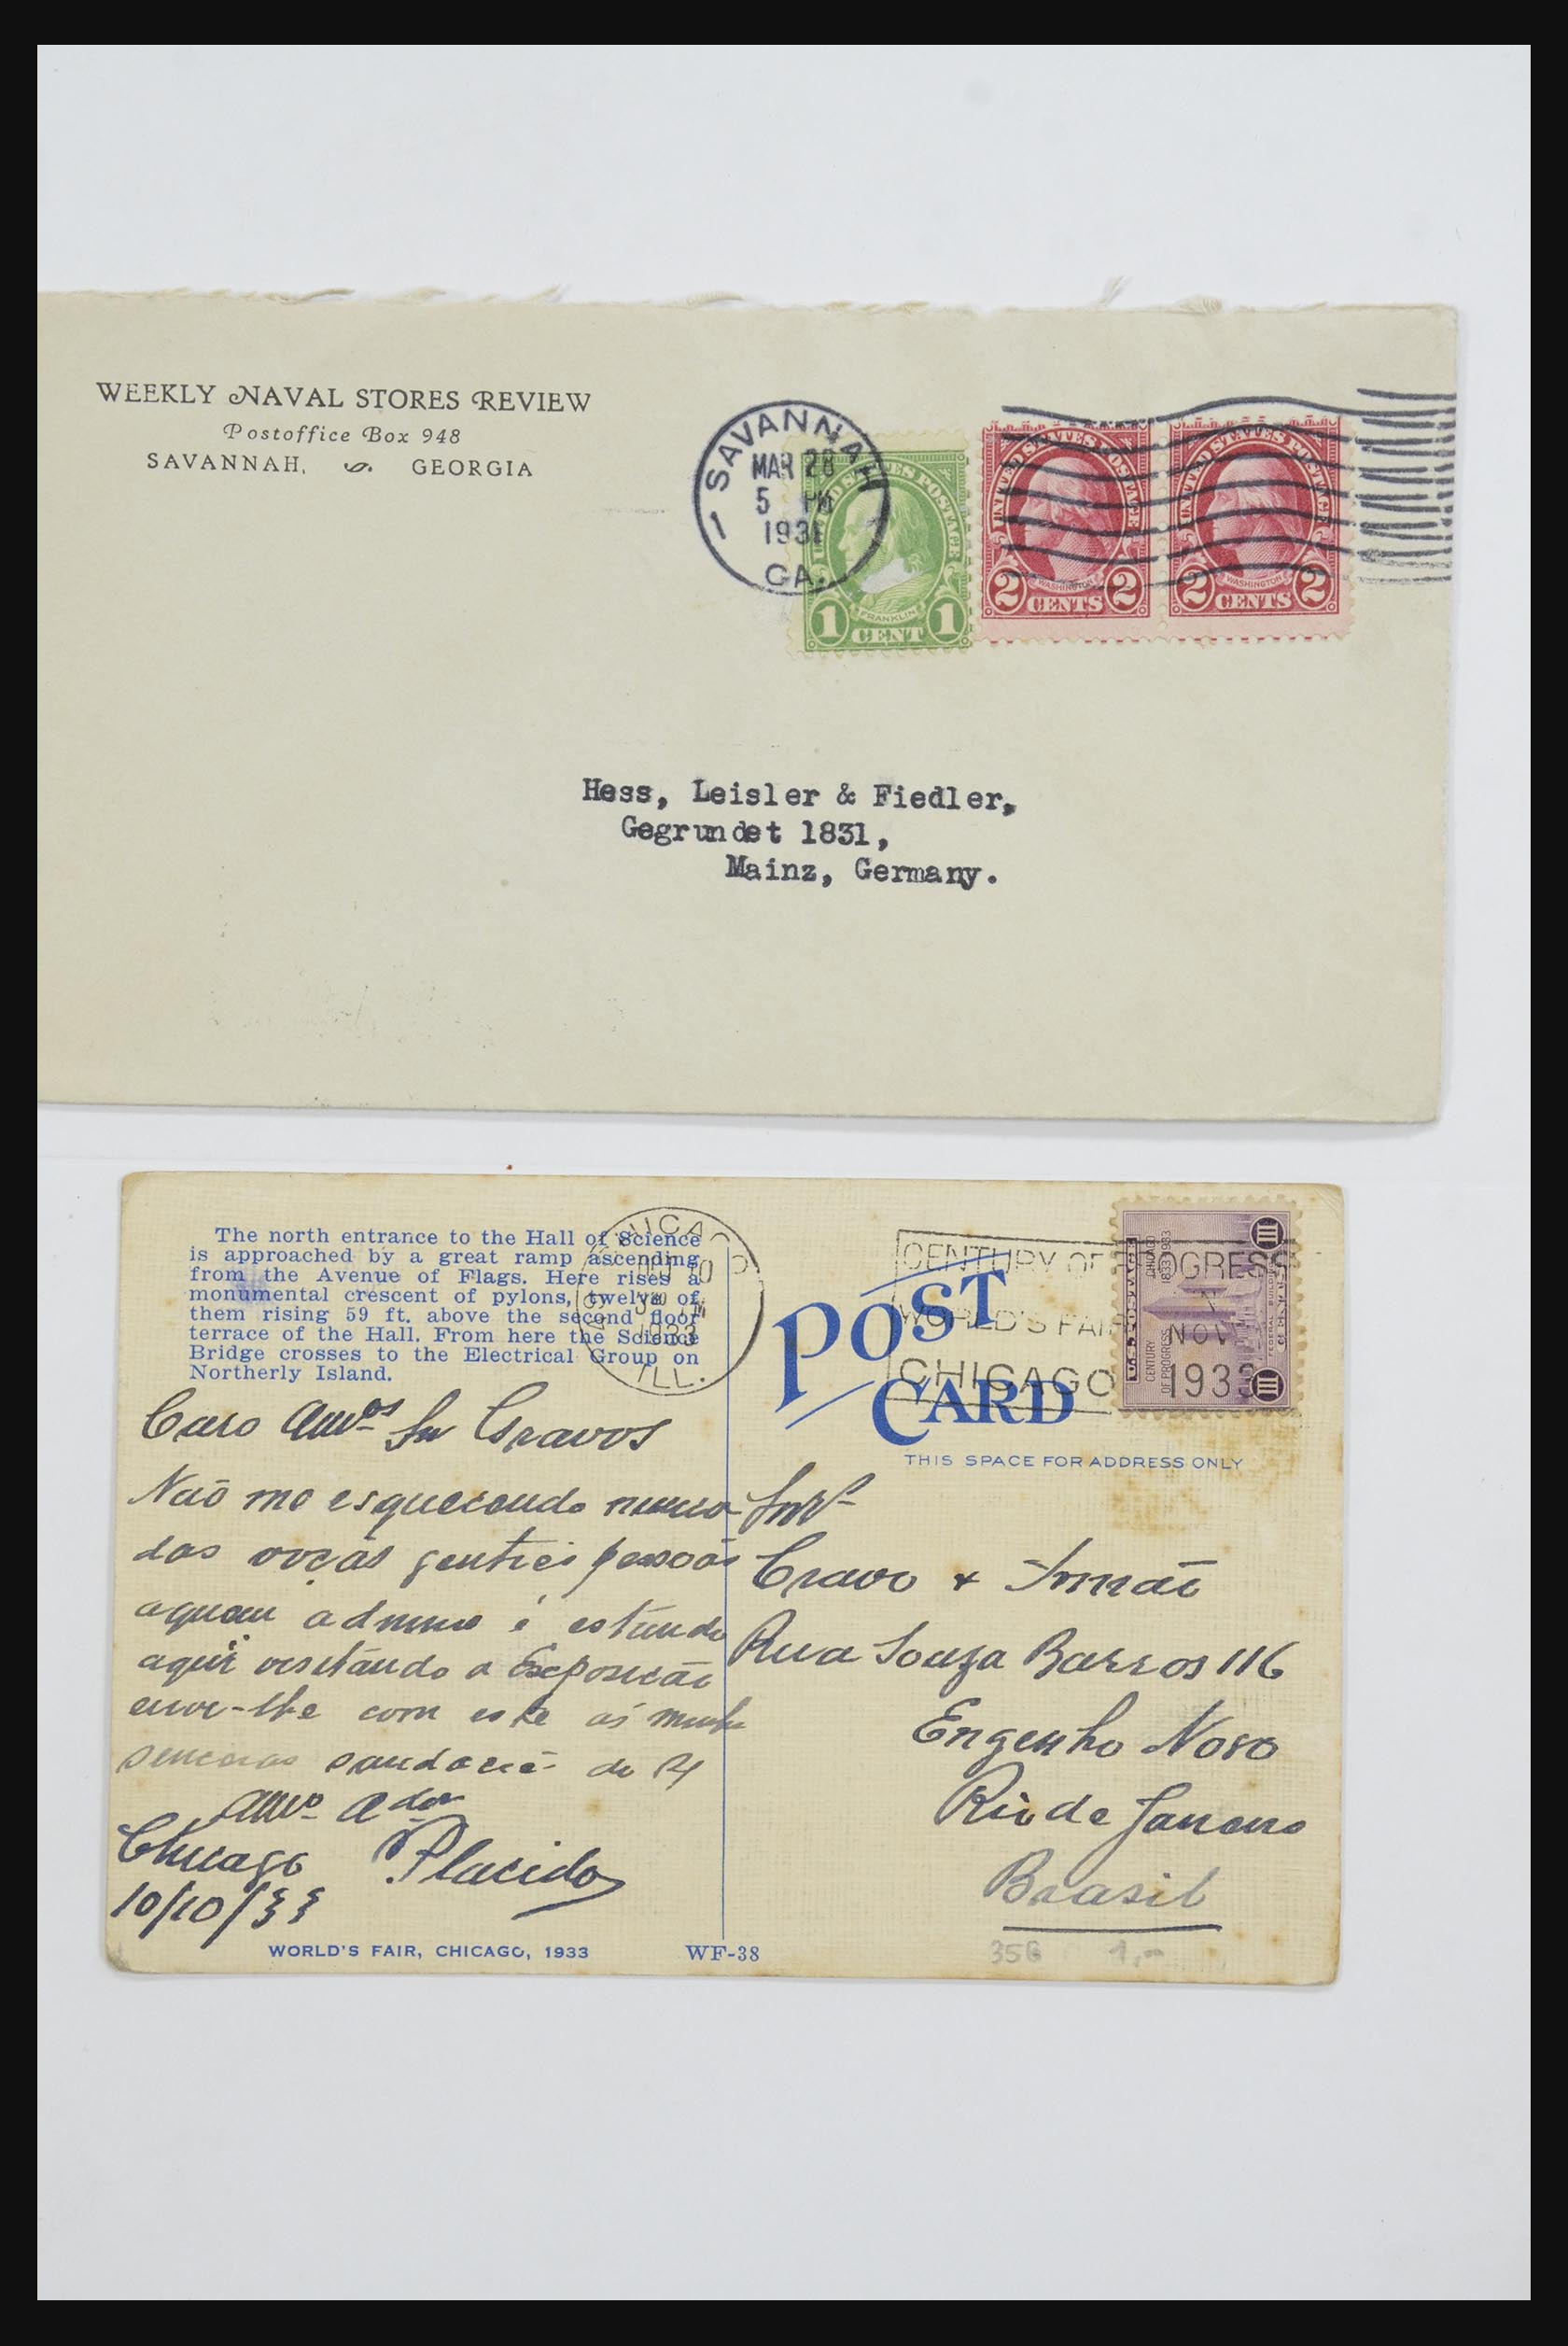 WEEKLY NAVAL STORES REVIEW
Postoffice Box 948
SAVANNAH, GEORGIA
SAVANNAH
MAR 28
5 PM
1931
GA.
UNITED STATES POSTAGE
FRANKLIN
1 CENT 1
UNITED STATES POSTAGE
WASHINGTON
2 CENTS 2
UNITED STATES POSTAGE
WASHINGTON
2 CENTS 2
Hess, Leisler & Fiedler,
Gegrundet 1831,
Mainz, Germany.
The north entrance to the Hall of Science
is approached by a great ramp ascending
from the Avenue of Flags. Here rises a
monumental crescent of pylons, twelve of
them rising 59 ft. above the second floor
terrace of the Hall. From here the Science
Bridge crosses to the Electrical Group on
Northerly Island.
CHICAGO
10
1933
ILL.
CENTURY OF PROGRESS
WORLD'S FAIR
NOV. 1
CHICAGO 1933
U.S. POSTAGE
CHICAGO
1833 1933
CENTURY
OF PROGRESS
FEDERAL BUILDING
POST
CARD
THIS SPACE FOR ADDRESS ONLY
Caro Amos Snr Cravos
Não me esquecendo nunca
das pessoas
aquem admiro é estando
aqui visitando a Exposicão
envi-lhe com este as minha
senceras do
amo ador
Chicago Placido
10/10/33
Cravo & Irmão
Rua Souza Barros 116
Engenho Novo
Rio de Janeiro
Brasil
356 1,-
WORLD'S FAIR, CHICAGO, 1933 WF-38